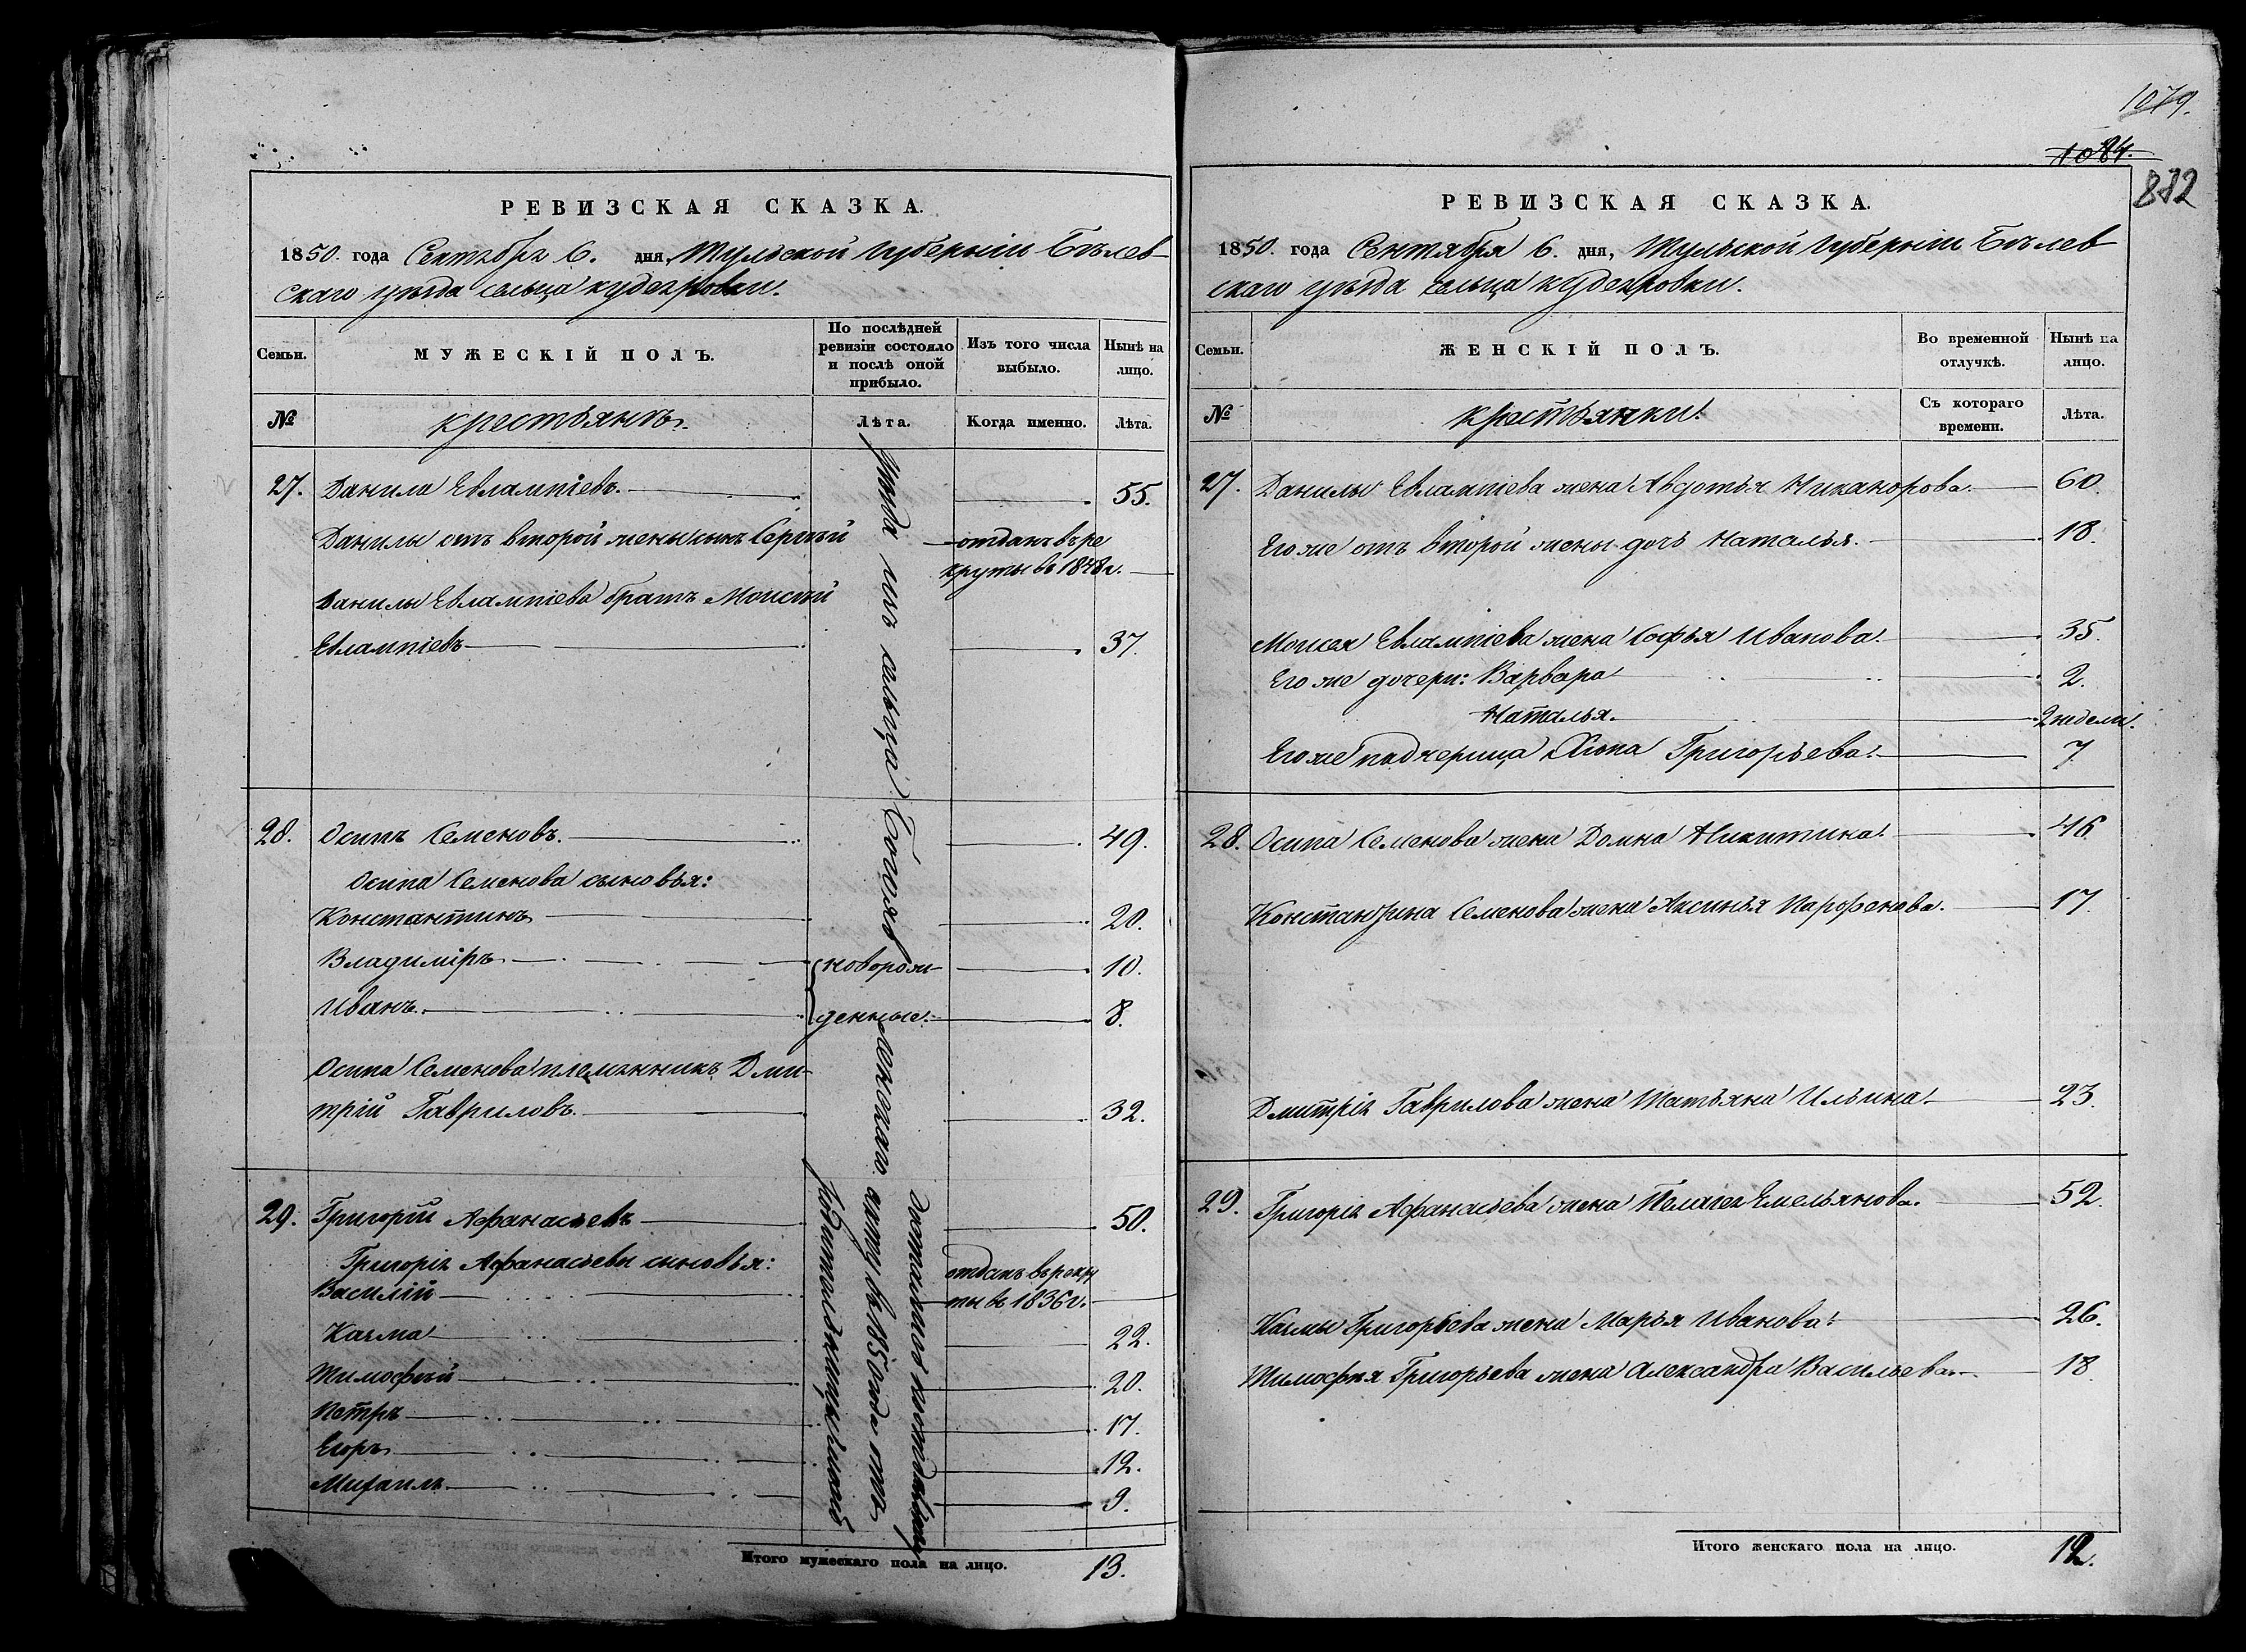 РЕВИЗСКАЯ СКАЗКА.
1850. года Сентября 6. дня, Тульской Губерніи Бѣлев-
скаго уѣзда сельца Кудеяровки.
Семьи.
МУЖЕСКІЙ ПОЛЪ.
По послѣдней
ревизіи состояло
и послѣ оной
прибыло.
Изъ того числа
выбыло.
Нынѣ на
лицо.
№
крестьянъ.
Лѣта.
Когда именно.
Лѣта.
27. Данила Евлампіевъ. 55.
Данилы отъ второй жены сынъ Сергѣй отданъ въ ре
круты въ 1848 г.
Данилы Евлампіева братъ Моисѣй
Евлампіевъ 37.
28. Осипъ Семеновъ. 49.
Осипа Семенова сыновья:
Константинъ 20.
Владиміръ новорож- 10.
Иванъ. денные. 8.
Осипа Семенова племянникъ Дми-
трій Гавриловъ. 32.
29. Григорій Афанасьевъ 50.
Григорія Афанасьева сыновья: отданъ въ рекру
Василій ты въ 1836 г.
Казма 22.
Тимофѣй 20.
Петръ 17.
Егоръ 12.
Михаилъ 9.
уѣзда изъ сельца
скаго въ 1850 года
Итого мужескаго пола на лицо. 13.
1079.
1084.
832
РЕВИЗСКАЯ СКАЗКА.
1850. года Сентября 6. дня, Тульской Губерніи Бѣлев
скаго уѣзда сельца Кудеяровки.
Семьи.
ЖЕНСКІЙ ПОЛЪ.
Во временной
отлучкѣ.
Нынѣ на
лицо.
№
крестьянки.
Съ котораго
времени.
Лѣта.
27. Данилы Евлампіева жена Авдотья Никанорова. 60.
Его же отъ второй жены дочь Наталья. 18.
Моисея Евлампіева жена Софья Иванова. 35.
Его же дочери: Варвара 2.
Наталья. 2 недели.
Его же падчерица Григорьева. 7
28. Осипа Семенова жена Домна Никитина. 46
Константина Семенова жена Аксинья Парфенова. 17.
Дмитрія Гаврилова жена Татьяна Ильина. 23.
29. Григорія Афанасьева жена Пелагея Емельянова. 52.
Казмы Григорьева жена Марья Иванова. 26.
Тимофѣя Григорьева жена Александра Васильева. 18.
Итого женскаго пола на лицо. 12.